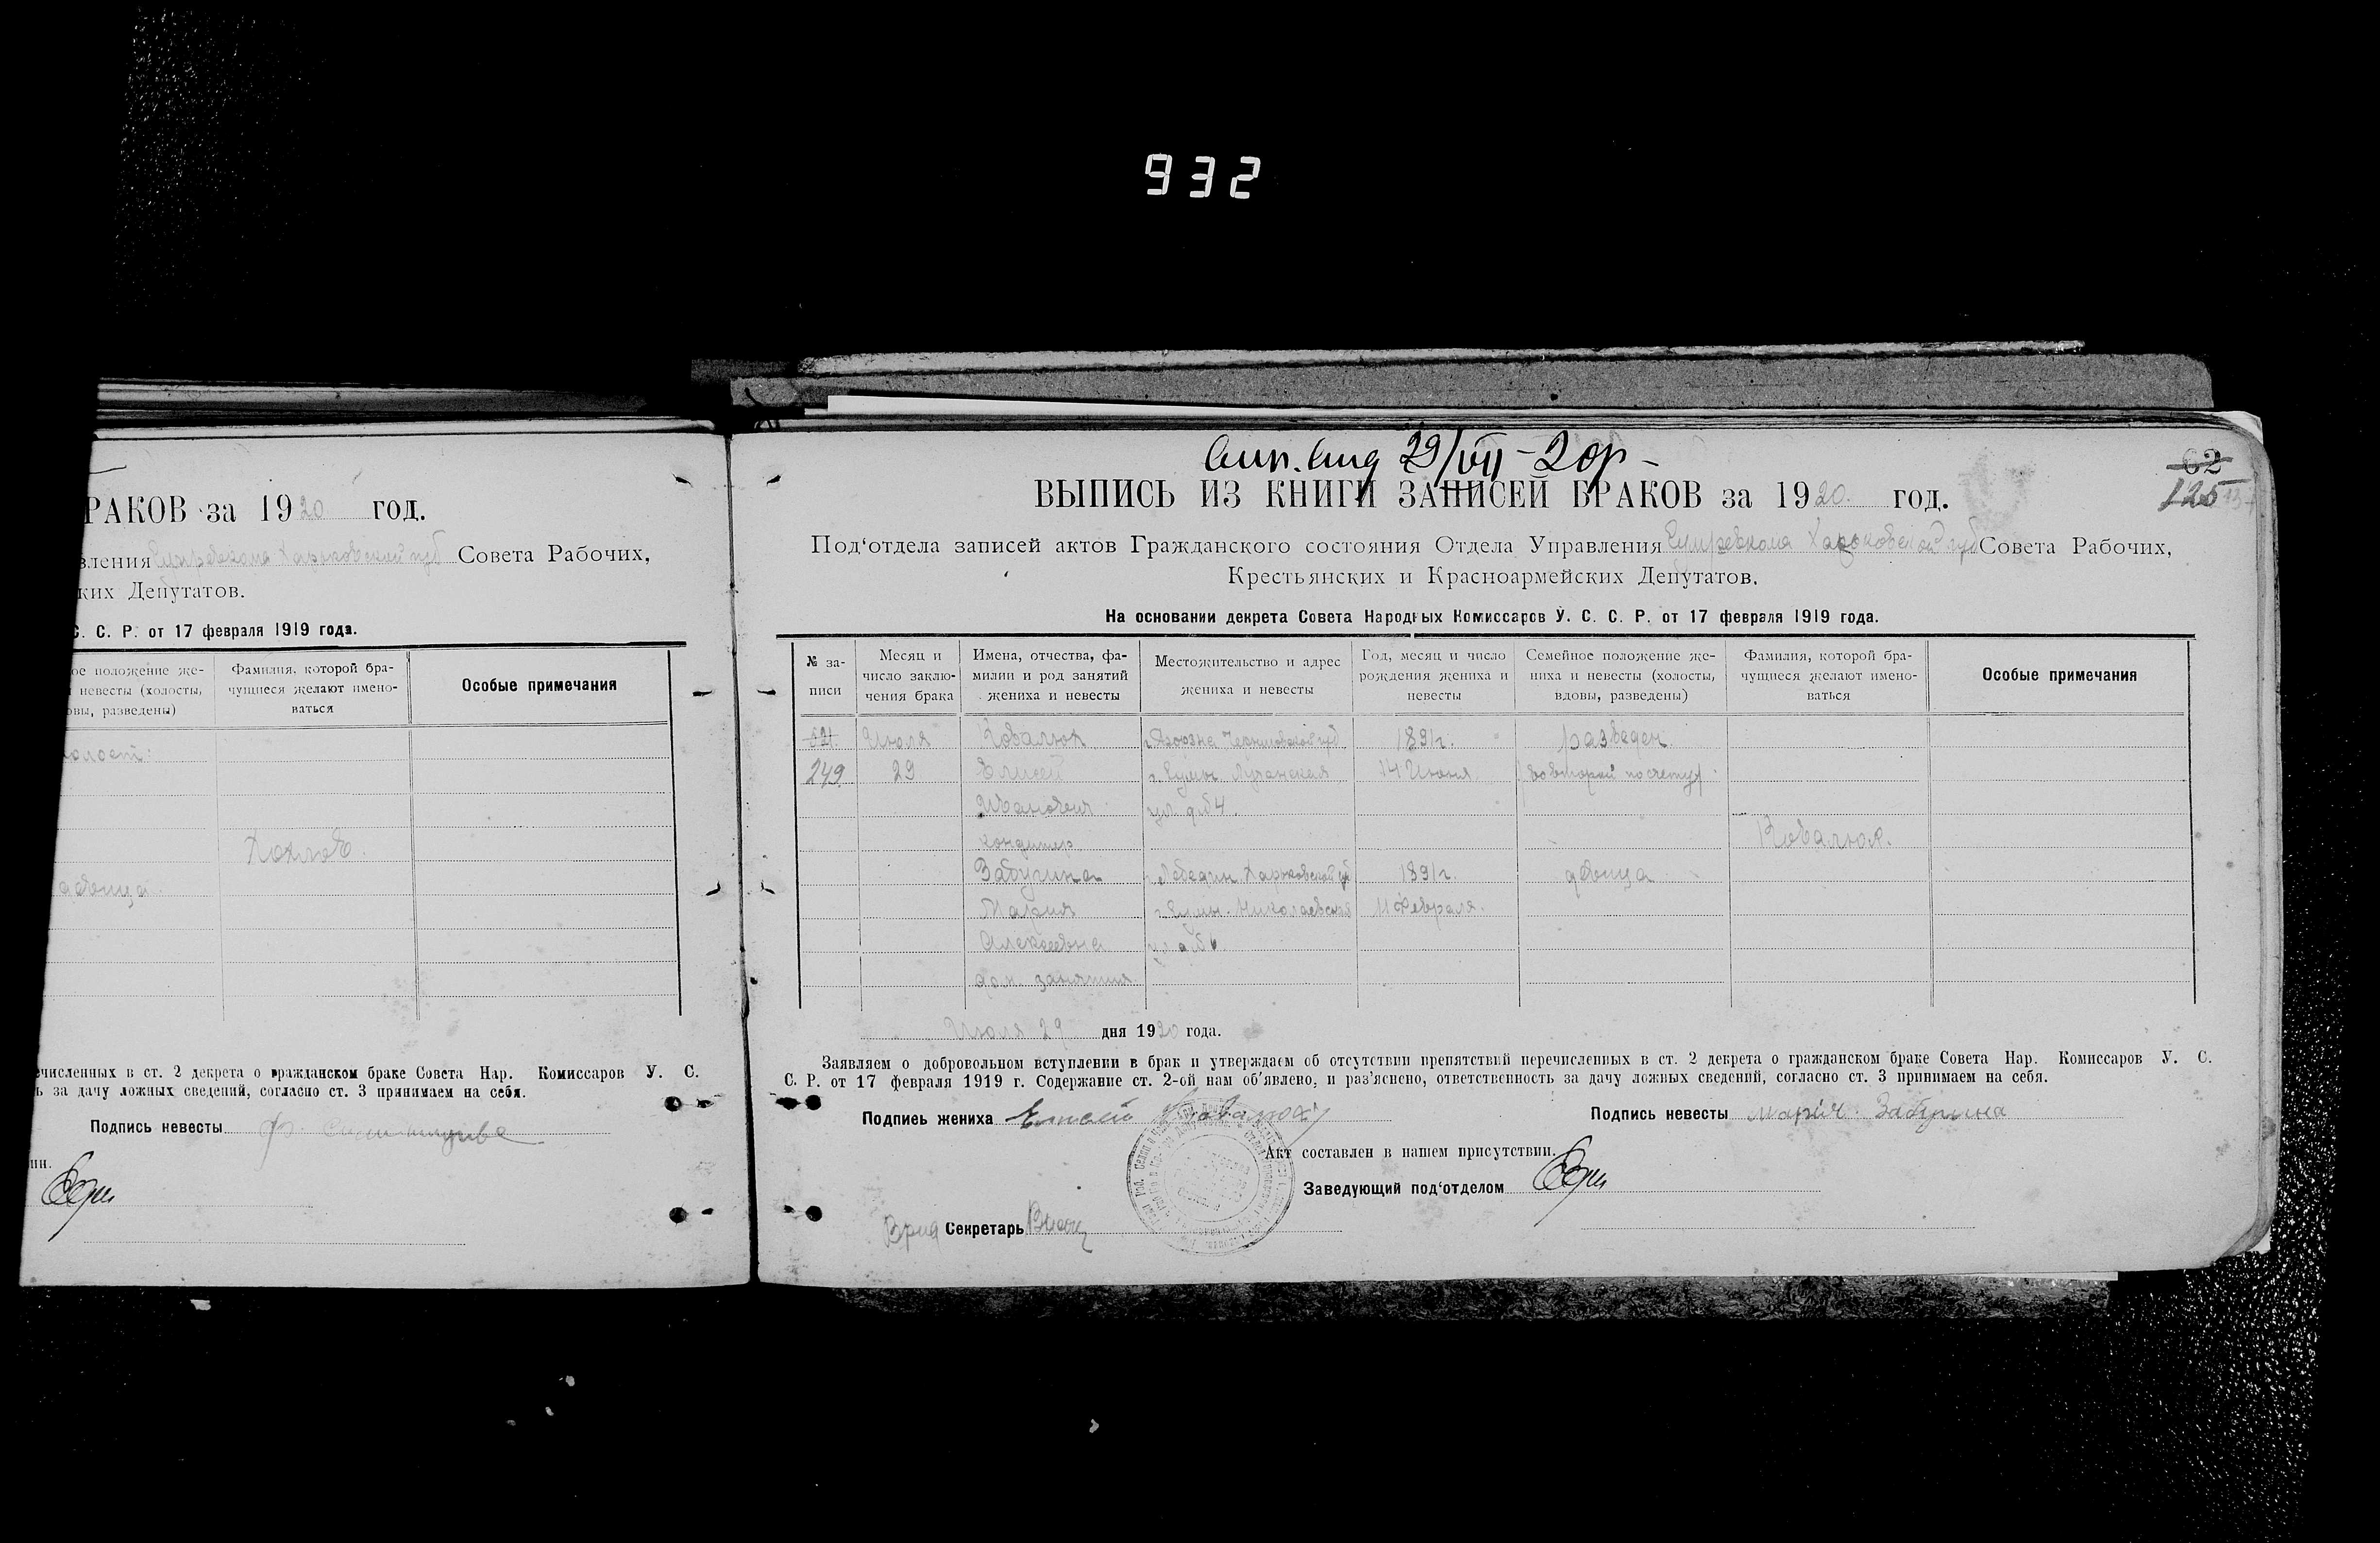 932
РАКОВ за 1920 год.
вления Сумревкома Харьковской губ Совета Рабочих,
ких Депутатов.
С. С. Р. от 17 февраля 1919 года.
ое положение же-
невесты (холосты,
овы, разведены)
Фамилия, которой бра-
чущиеся желают имено-
ваться
Особые примечания
холост
Хохлов.
девица
ечисленных в ст. 2 декрета о гражданском браке Совета Нар. Комиссаров У. С.
ь за дачу ложных сведений, согласно ст. 3 принимаем на себя.
Подпись невесты
ии.
29/VII-20г-
62
125
ВЫПИСЬ ИЗ КНИГИ ЗАПИСЕЙ БРАКОВ за 1920. год.
Под'отдела записей актов Гражданского состояния Отдела Управления Сумревкома Харьковской губ Совета Рабочих,
Крестьянских и Красноармейских Депутатов.
На основании декрета Совета Народных Комиссаров У. С. С. Р. от 17 февраля 1919 года.
№ за-
писи
Месяц и
число заклю-
чения брака
Имена, отчества, фа-
милии и род занятий
жениха и невесты
Местожительство и адрес
жениха и невесты
Год, месяц и число
рождения жениха и
невесты
Семейное положение же-
ниха и невесты (холосты,
вдовы, разведены)
Фамилия, которой бра-
чущиеся желают имено-
ваться
Особые примечания
Июля Ковалюх Черниговской губ 1891г. разведен.
249. 29 Елисей г. Сумы Лучанская 14 Июня во второй по счету
Иванович ул. д. № 4.
кондитер Ковалюх.
Забугина г. Лебедин Харьковской губ 1891г. девица
Мария г. Сумы Николаевская 11 Февраля.
Алексеевна ул. д № 6.
дом. занятия
Июля 29 дня 1920 года.
Заявляем о добровольном вступлении в брак и утверждаем об отсутствии препятствий перечисленных в ст. 2 декрета о гражданском браке Совета Нар. Комиссаров У. С.
С. Р. от 17 февраля 1919 г. Содержание ст. 2-ой нам об'явлено, и раз'яснено, ответственность за дачу ложных сведений, согласно ст. 3 принимаем на себя.
Подпись жениха Елисей Ковалюх
Подпись невесты Мария Забугина
Акт составлен в нашем присутствии.
Заведующий под'отделом
Врид Секретарь